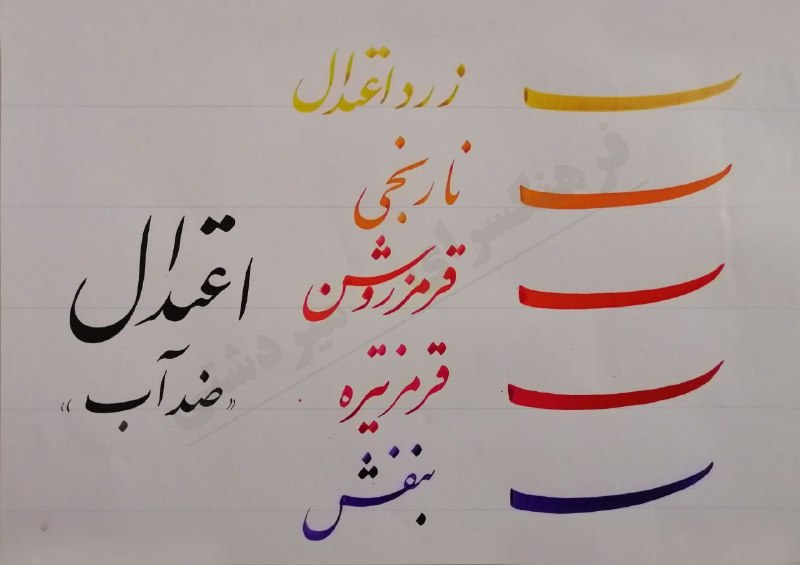 زرد اعتدال
نارنجی
قرمز روشن
قرمز تیره
بنفش
اعتدال
«ضد آب»
فرهنگسرای میردشتی